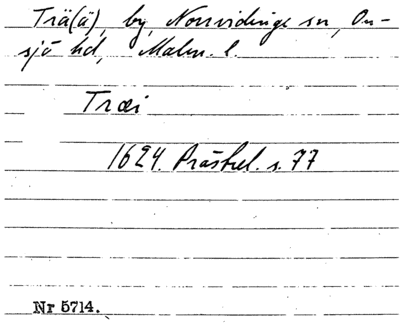 Trä(ä), by, Norrvidinge sn, On-
sjö hd, Malm. l.
Træi
1624. Prästrel. s. 77
Nr 5714.